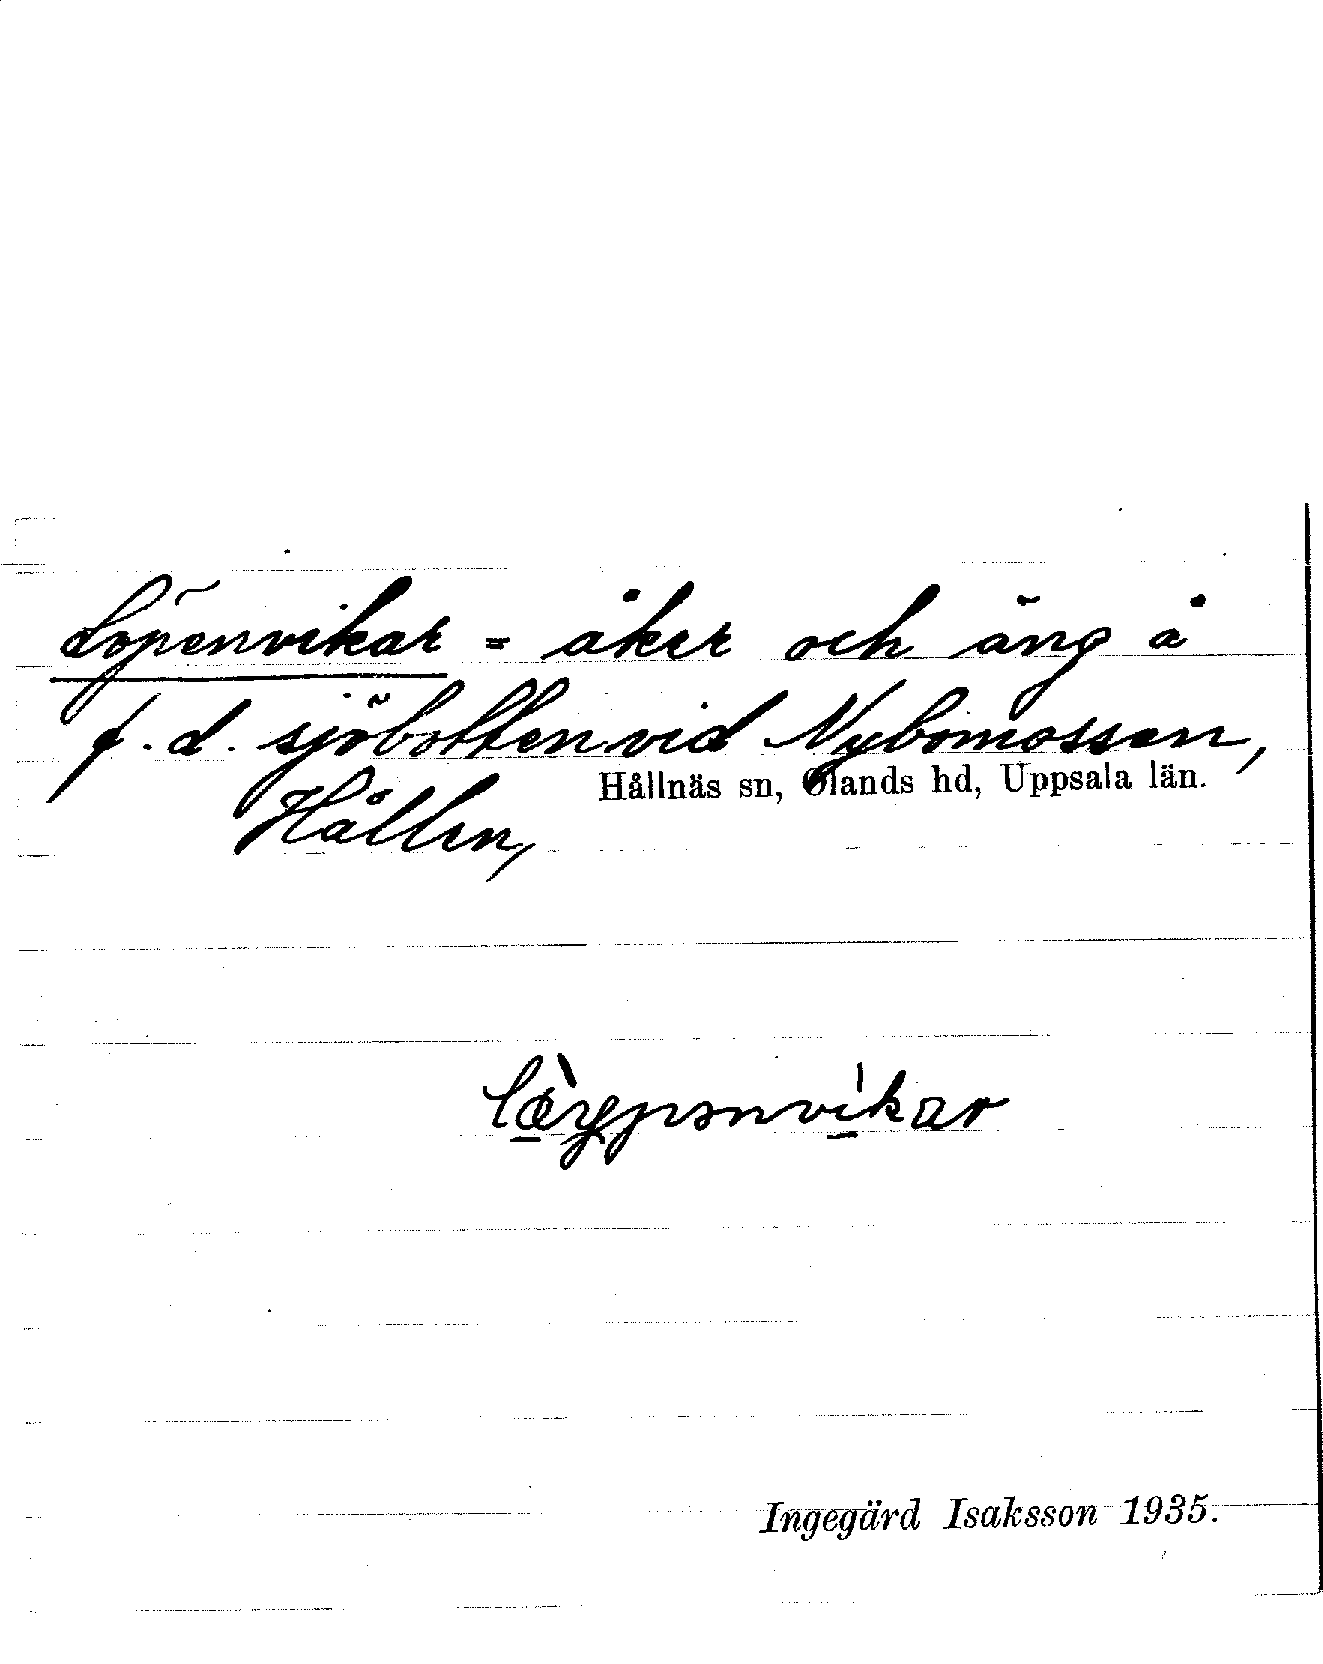 Löpenvikar = åker och äng å
f.d. sjöbotten vid Nybomossen,
Hållen, Hållnäs sn, Ølands hd, Uppsala län.
Ingegärd Isaksson 1935.